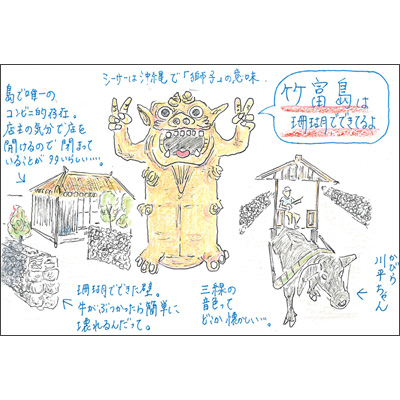 シーサーは沖縄で「獅子」の意味.
竹富島は
珊瑚でできてるよ
島で唯一の
コンビニ的存在。
店主の気分で店を
開けるので閉まって
いることが多いらしい…。
珊瑚でできた壁。
牛がぶつかったら簡単に
壊れるんだって。
三線の
音色って
どこか懐かしい…。
かびら
川平ちゃん